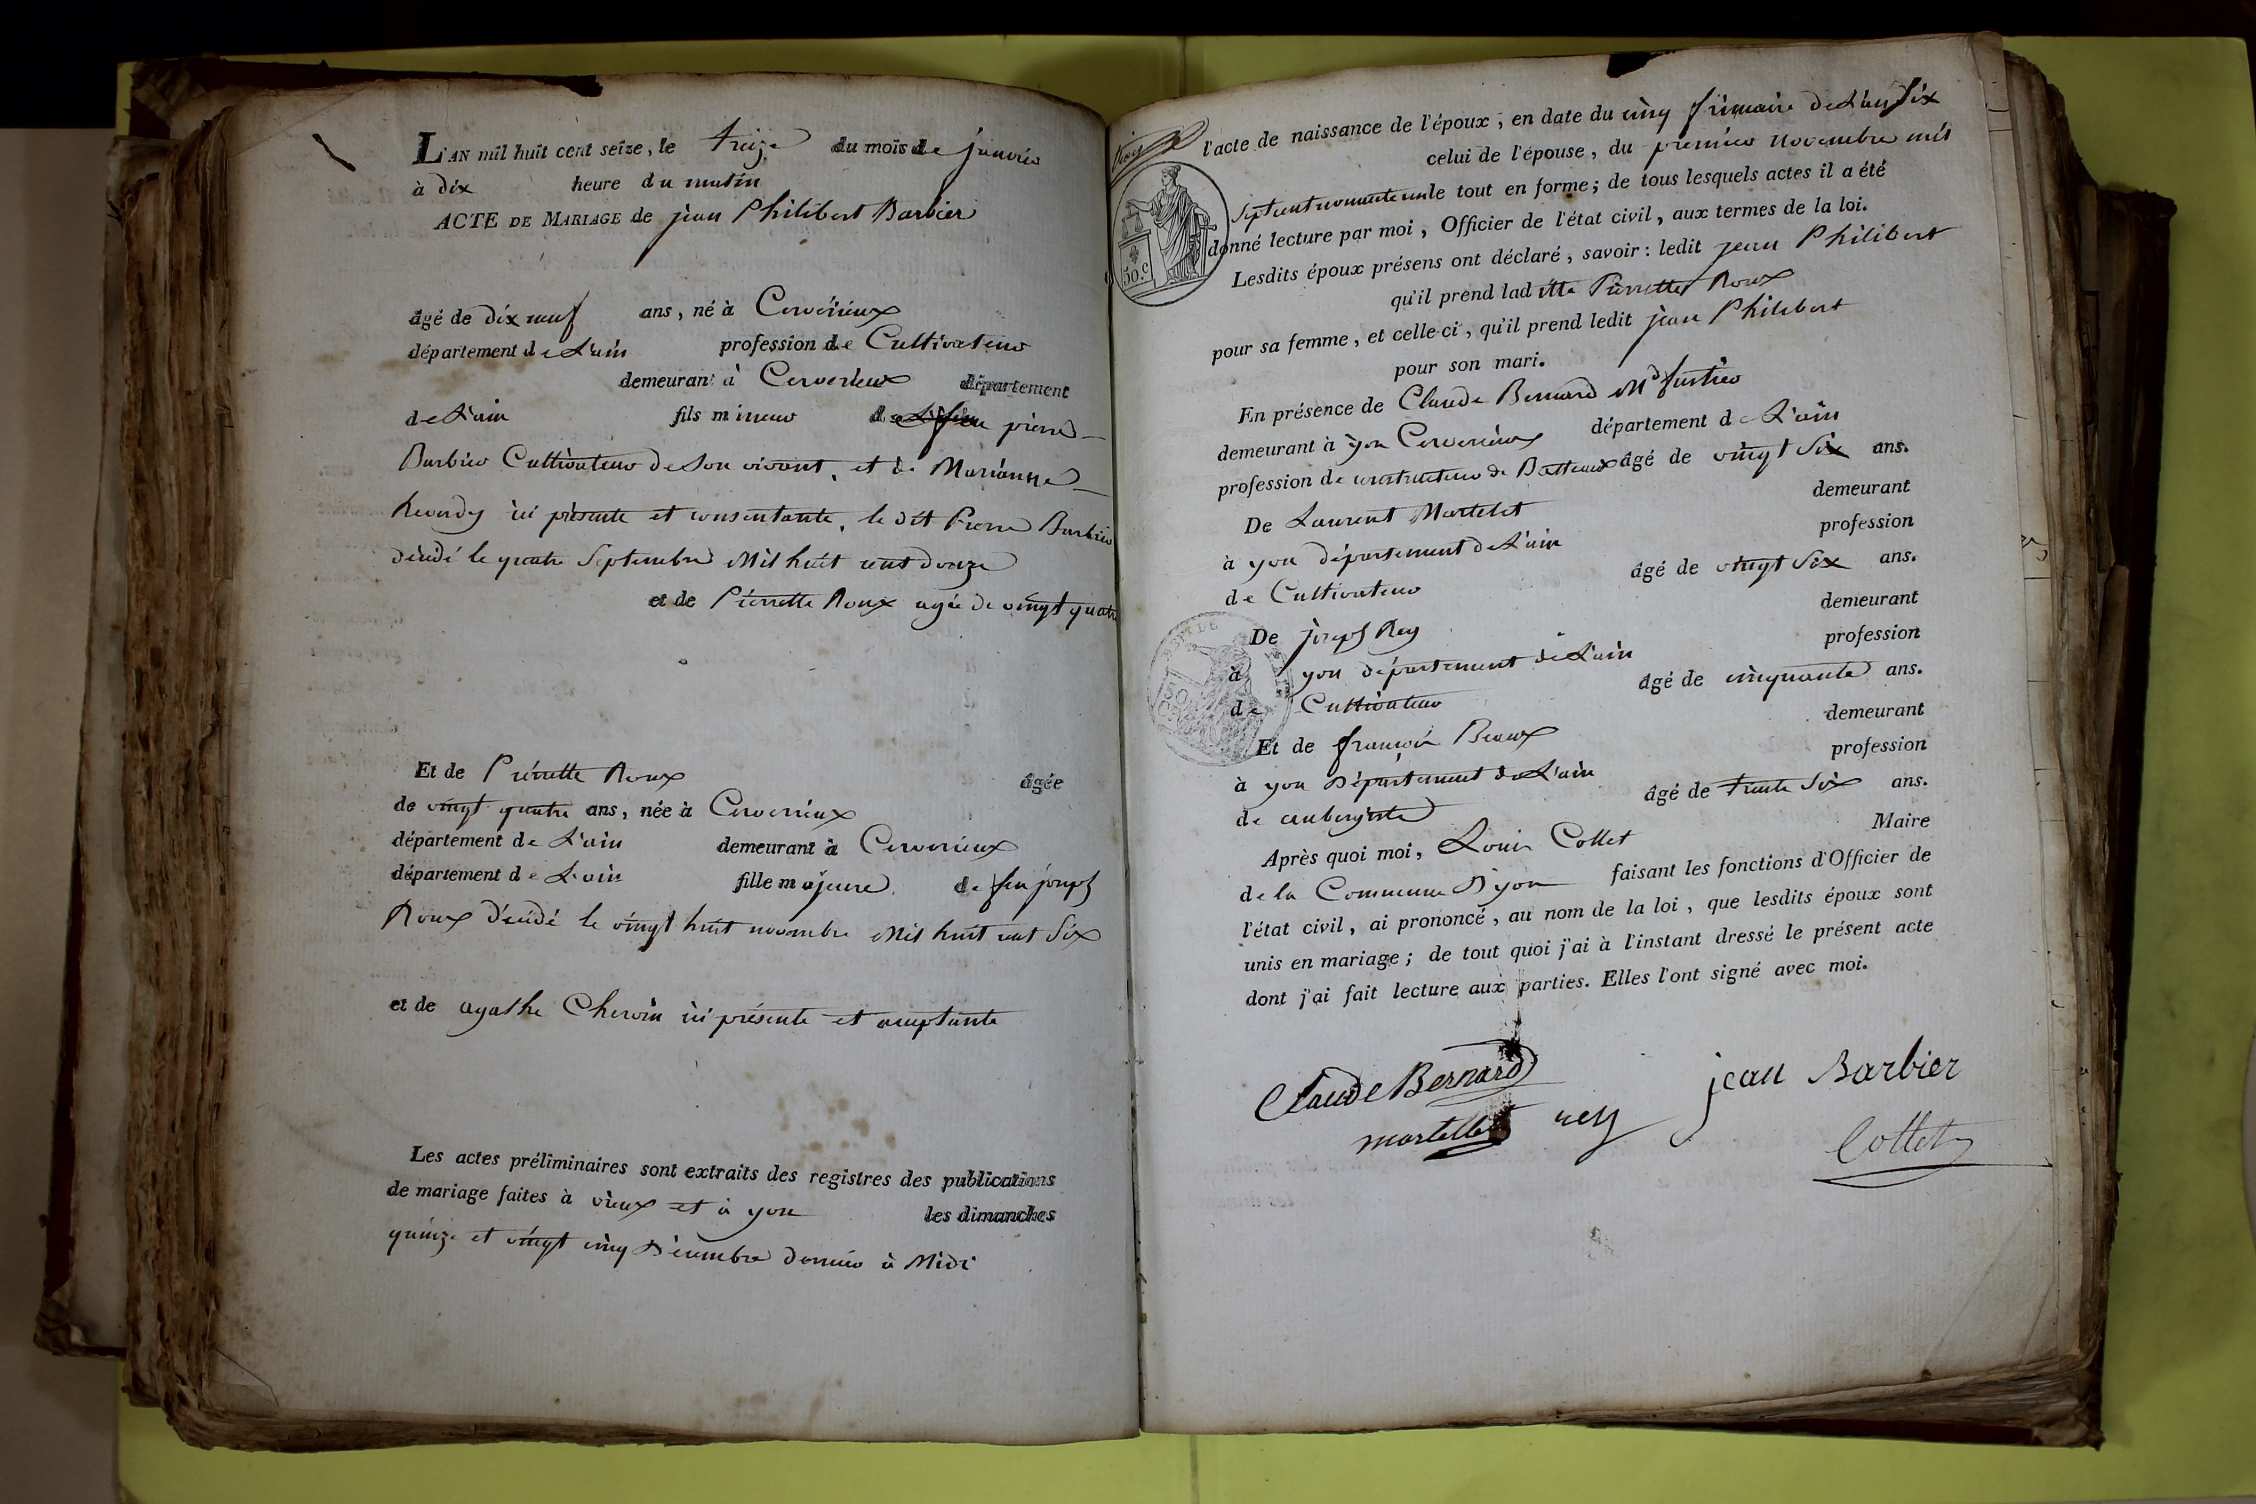 L'AN mil huit cent seize, le treize du mois de janvier
à dix heure du matin
ACTE DE MARIAGE de jean Philibert Barbier
âgé de dix neuf ans, né à Cervérieux
département de L'ain profession de Cultivateur
demeurant à Cerverieux département
de L'ain fils mineur de feu pierre
Barbier Cultivateur de Son vivant, et de Marianne
Reverdy ici présente et consentante, le dit Pierre Barbier
décédé le quatre Septembre Mil huit cent douze
et de Pierrette Roux agée de vingt quatre
Et de Piérrette Roux âgée
de vingt quatre ans, née à Cerverieux
département de L'ain demeurant à Cerverieux
département de L'ain fille majeure de feu joseph
Roux décédé le vingt huit novembre Mil huit cent Six
et de agathe Chervin ici présente et acceptante
Les actes préliminaires sont extraits des registres des publications
de mariage faites à vieux et à yon les dimanches
quinze et vingt cinq Décembre dernier à Midi
l'acte de naissance de l'époux, en date du cinq frimaire de L'an Six
celui de l'épouse, du premier novembre mil
Sept cent nonante un le tout en forme; de tous lesquels actes il a été
donné lecture par moi, Officier de l'état civil, aux termes de la loi.
Lesdits époux présens ont déclaré, savoir: ledit jean Philibert
qu'il prend ladite Pierrette Roux
pour sa femme, et celle-ci, qu'il prend ledit jean Philibert
pour son mari.
50.c
En présence de Claude Bernard Md
demeurant à yon Cerverieux département de L'ain
profession de constructeur de Batteaux âgé de vingt Six ans.
De Laurent Martelet demeurant
à yon département de L'ain profession
de Cultivateur âgé de vingt Six ans.
De joseph Rey demeurant
à yon département de L'ain profession
de Cultivateur âgé de cinquante ans.
Et de françois Beaux demeurant
à yon Département de L'ain profession
de aubergiste âgé de trente Six ans.
Après quoi moi, Louis Collet Maire
de la Commune D'yon faisant les fonctions d'Officier de
l'état civil, ai prononcé, au nom de la loi, que lesdits époux sont
unis en mariage; de tout quoi j'ai à l'instant dressé le présent acte
dont j'ai fait lecture aux parties. Elles l'ont signé avec moi.
Claude Bernard jean Barbier
martellet rey Collet